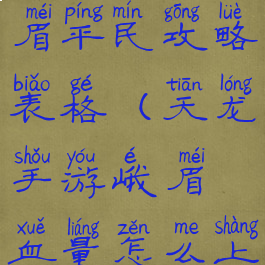 méi píng mín gōng lüè
眉平民攻略
biǎo gé tiān lóng
表格（天龙
shǒu yóu é méi
手游峨眉
xuě liáng zěn me shàng
血量怎么上